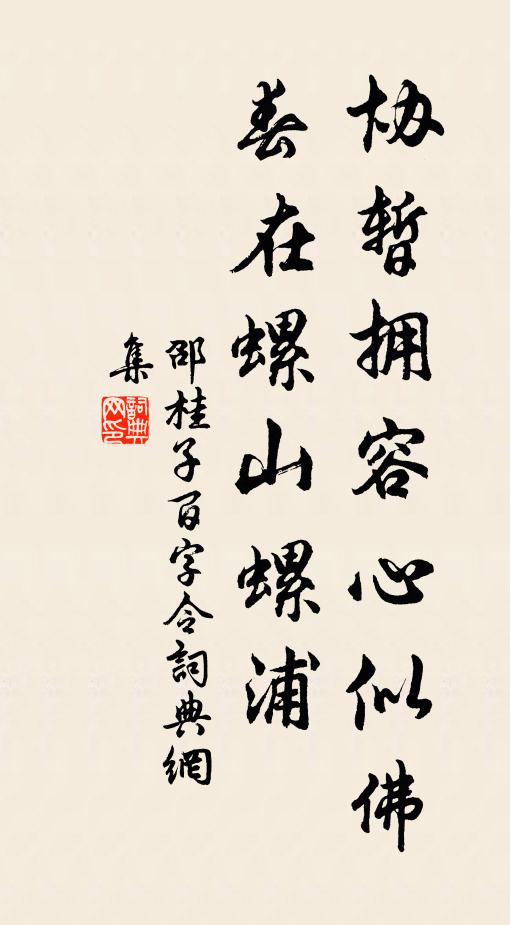 协暂拥容心似佛
春在螺山螺浦
邵桂子百字令詞典網
集
詞典网印